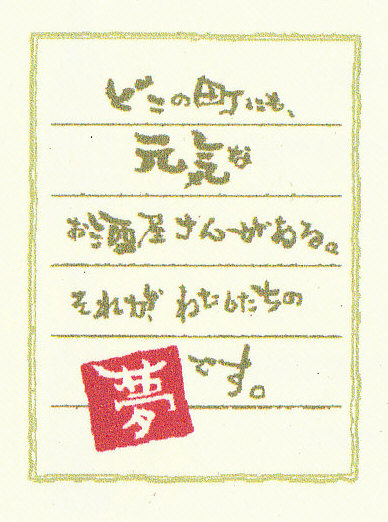 どこの町にも、
元気な
お酒屋さんがある。
それが、わたしたちの
夢です。